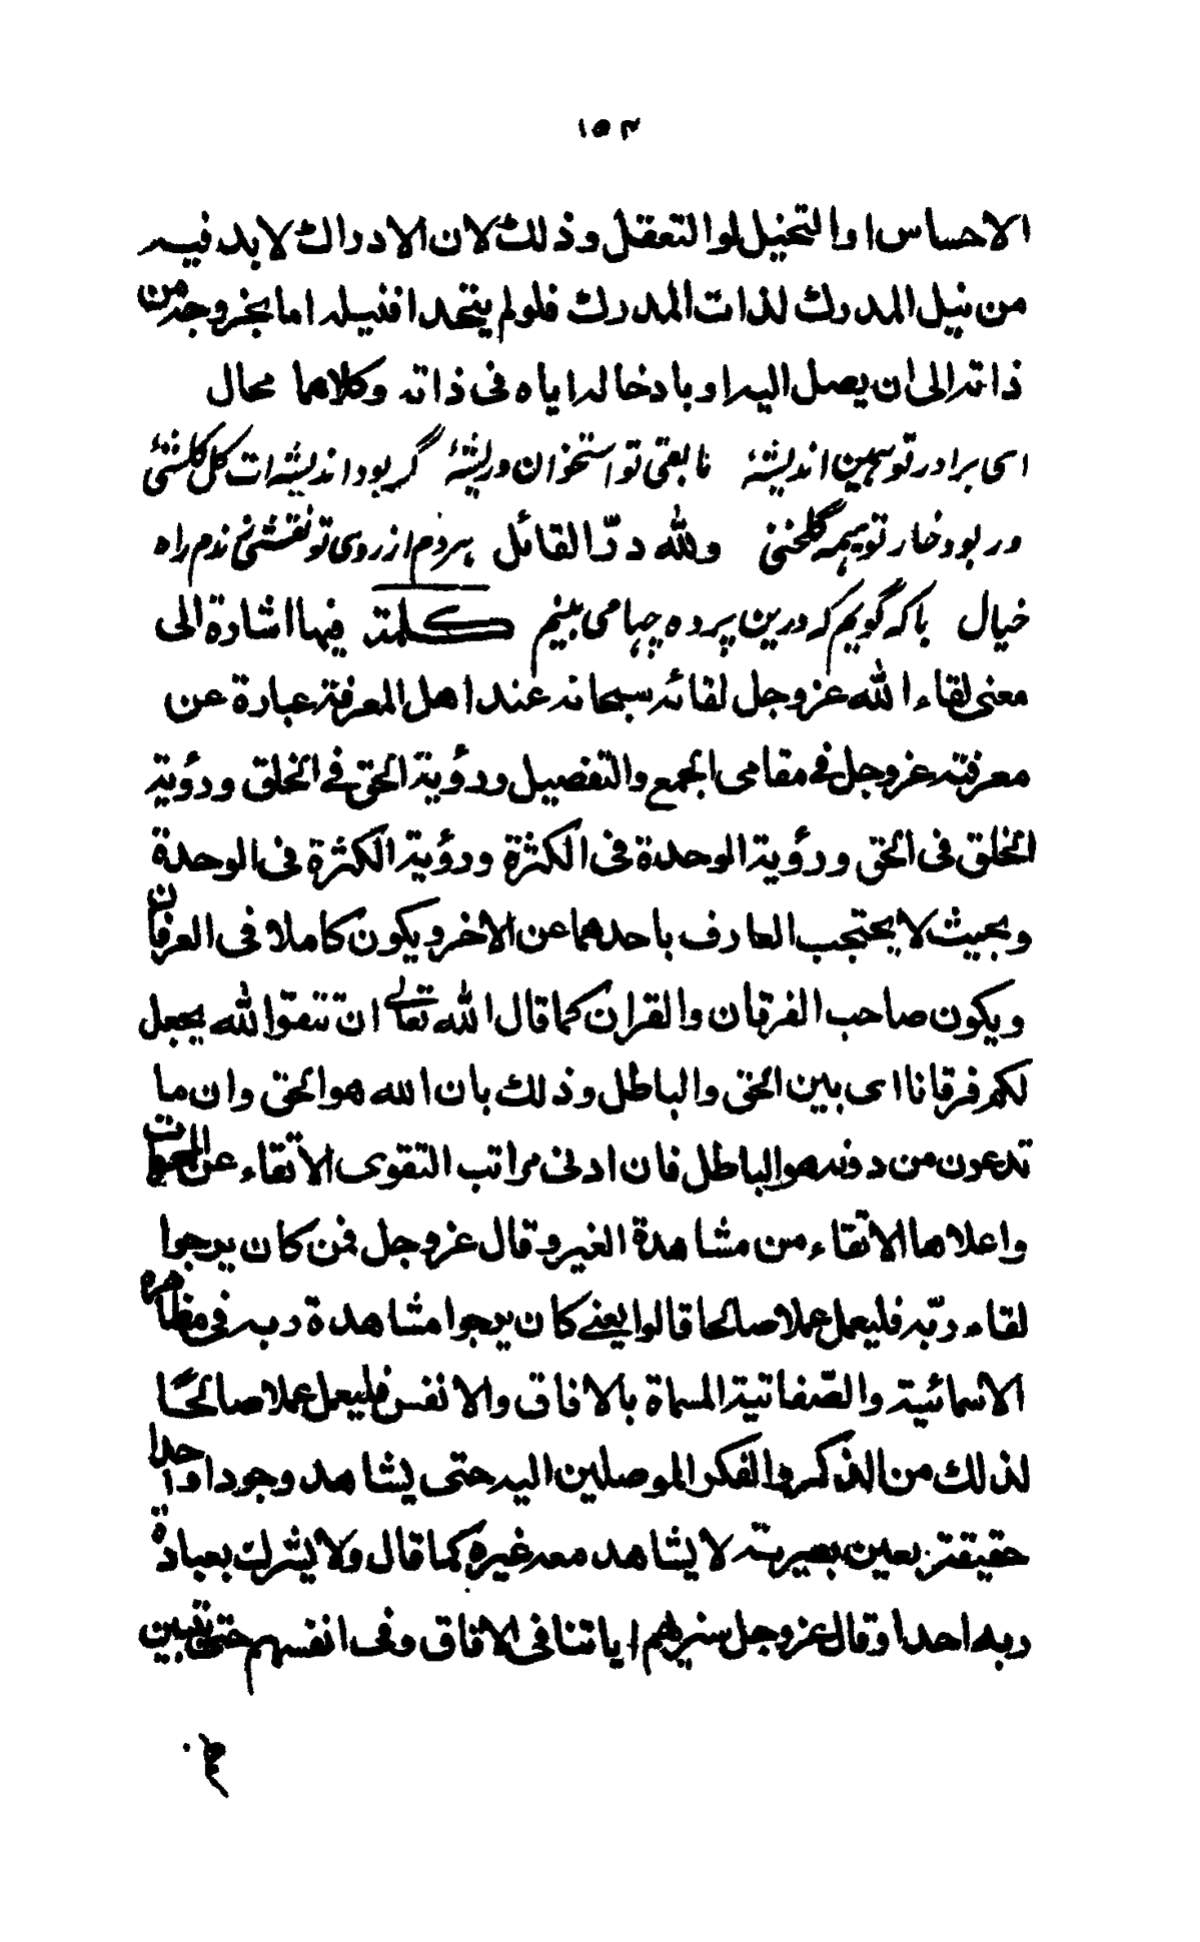 ١٥٣
الاحساس او التخيل او التعقل وذلك لان الادراك لا بد فيه
من نيل المدرك لذات المدرك فلو لم يتحدا فنيله اما بخروجه من
ذاته الى ان يصل اليه او بادخاله اياه في ذاته وكلاهما محال
ای برادر تو همین اندیشهٔ ما بقی تو استخوان و ریشهٔ گر بود اندیشه ات گل گلشنی
ور بود خار تو همه گلخنی ولله درّ القائل هر دم از روی تو نقشی زندم راه
خیال با که گویم که درین پرده چها می بینم كلمة فيها اشارة الى
معنى لقاء الله عز وجل لقائه سبحانه عند اهل المعرفة عبارة عن
معرفته عز وجل في مقامى الجمع والتفصيل ورؤية الحق في الخلق ورؤية
الخلق في الحق ورؤية الوحدة في الكثرة ورؤية الكثرة في الوحدة
وبحيث لا يحتجب العارف باحدهما عن الاخر ويكون كاملا في العرفان
ويكون صاحب الفرقان والقران كما قال الله تعالى ان تتقوا الله يجعل
لكم فرقانا اى بين الحق والباطل وذلك بان الله هو الحق وان ما
تدعون من دونه هو الباطل فان ادنى مراتب التقوى الاتقاء عن المحرمات
واعلاها الاتقاء من مشاهدة الغير وقال عز وجل فمن كان يرجوا
لقاء ربّه فليعمل عملا صالحا قالوا يعني كان يرجوا مشاهدة ربه في مظاهره
الاسمائية والصّفاتية المسماة بالافاق والانفس فليعمل عملا صالحًا
لذلك من الذكر والفكر الموصلين اليه حتى يشاهد وجودا واحدا
حقيقة بعين بصيرته لا يشاهد معه غيره كما قال ولا يشرك بعبادة
ربه احدا وقال عز وجل سنريهم اياتنا في الافاق وفى انفسهم حتى يتبين